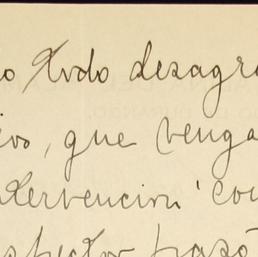 o todo desagra
ivo, que venga
ntervencion' con
spector pasó